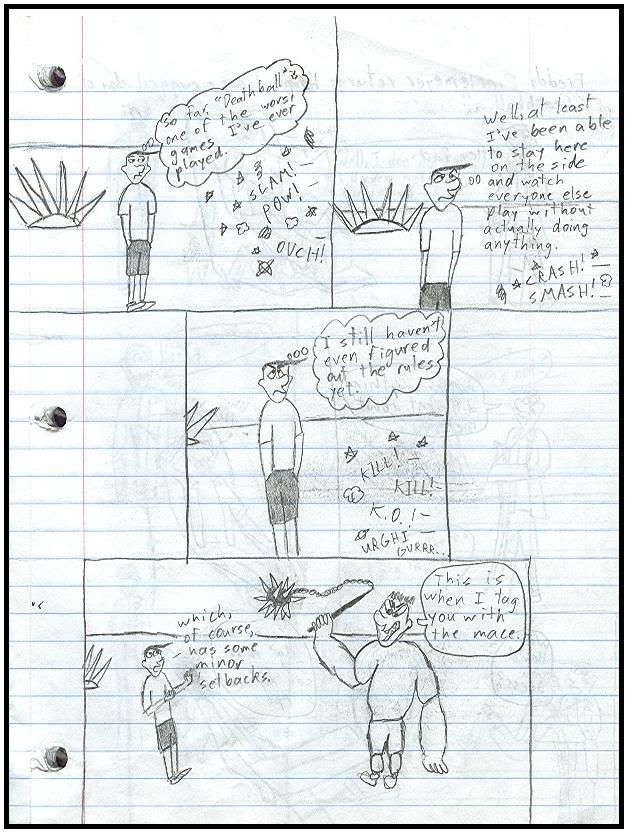 So far, "Deathball" is
one of the worst
games I've ever
played.
SLAM!
POW!
OUCH!
Well, at least
I've been able
to stay here
on the side
and watch
everyone else
play without
actually doing
anything.
CRASH!
SMASH!
I still haven't
even figured
out the rules
yet.
KILL!
KILL!
K.O.!
URGH!
GURRR..
which,
of course,
has some
minor
setbacks.
This is
when I tag
you with
the mace.